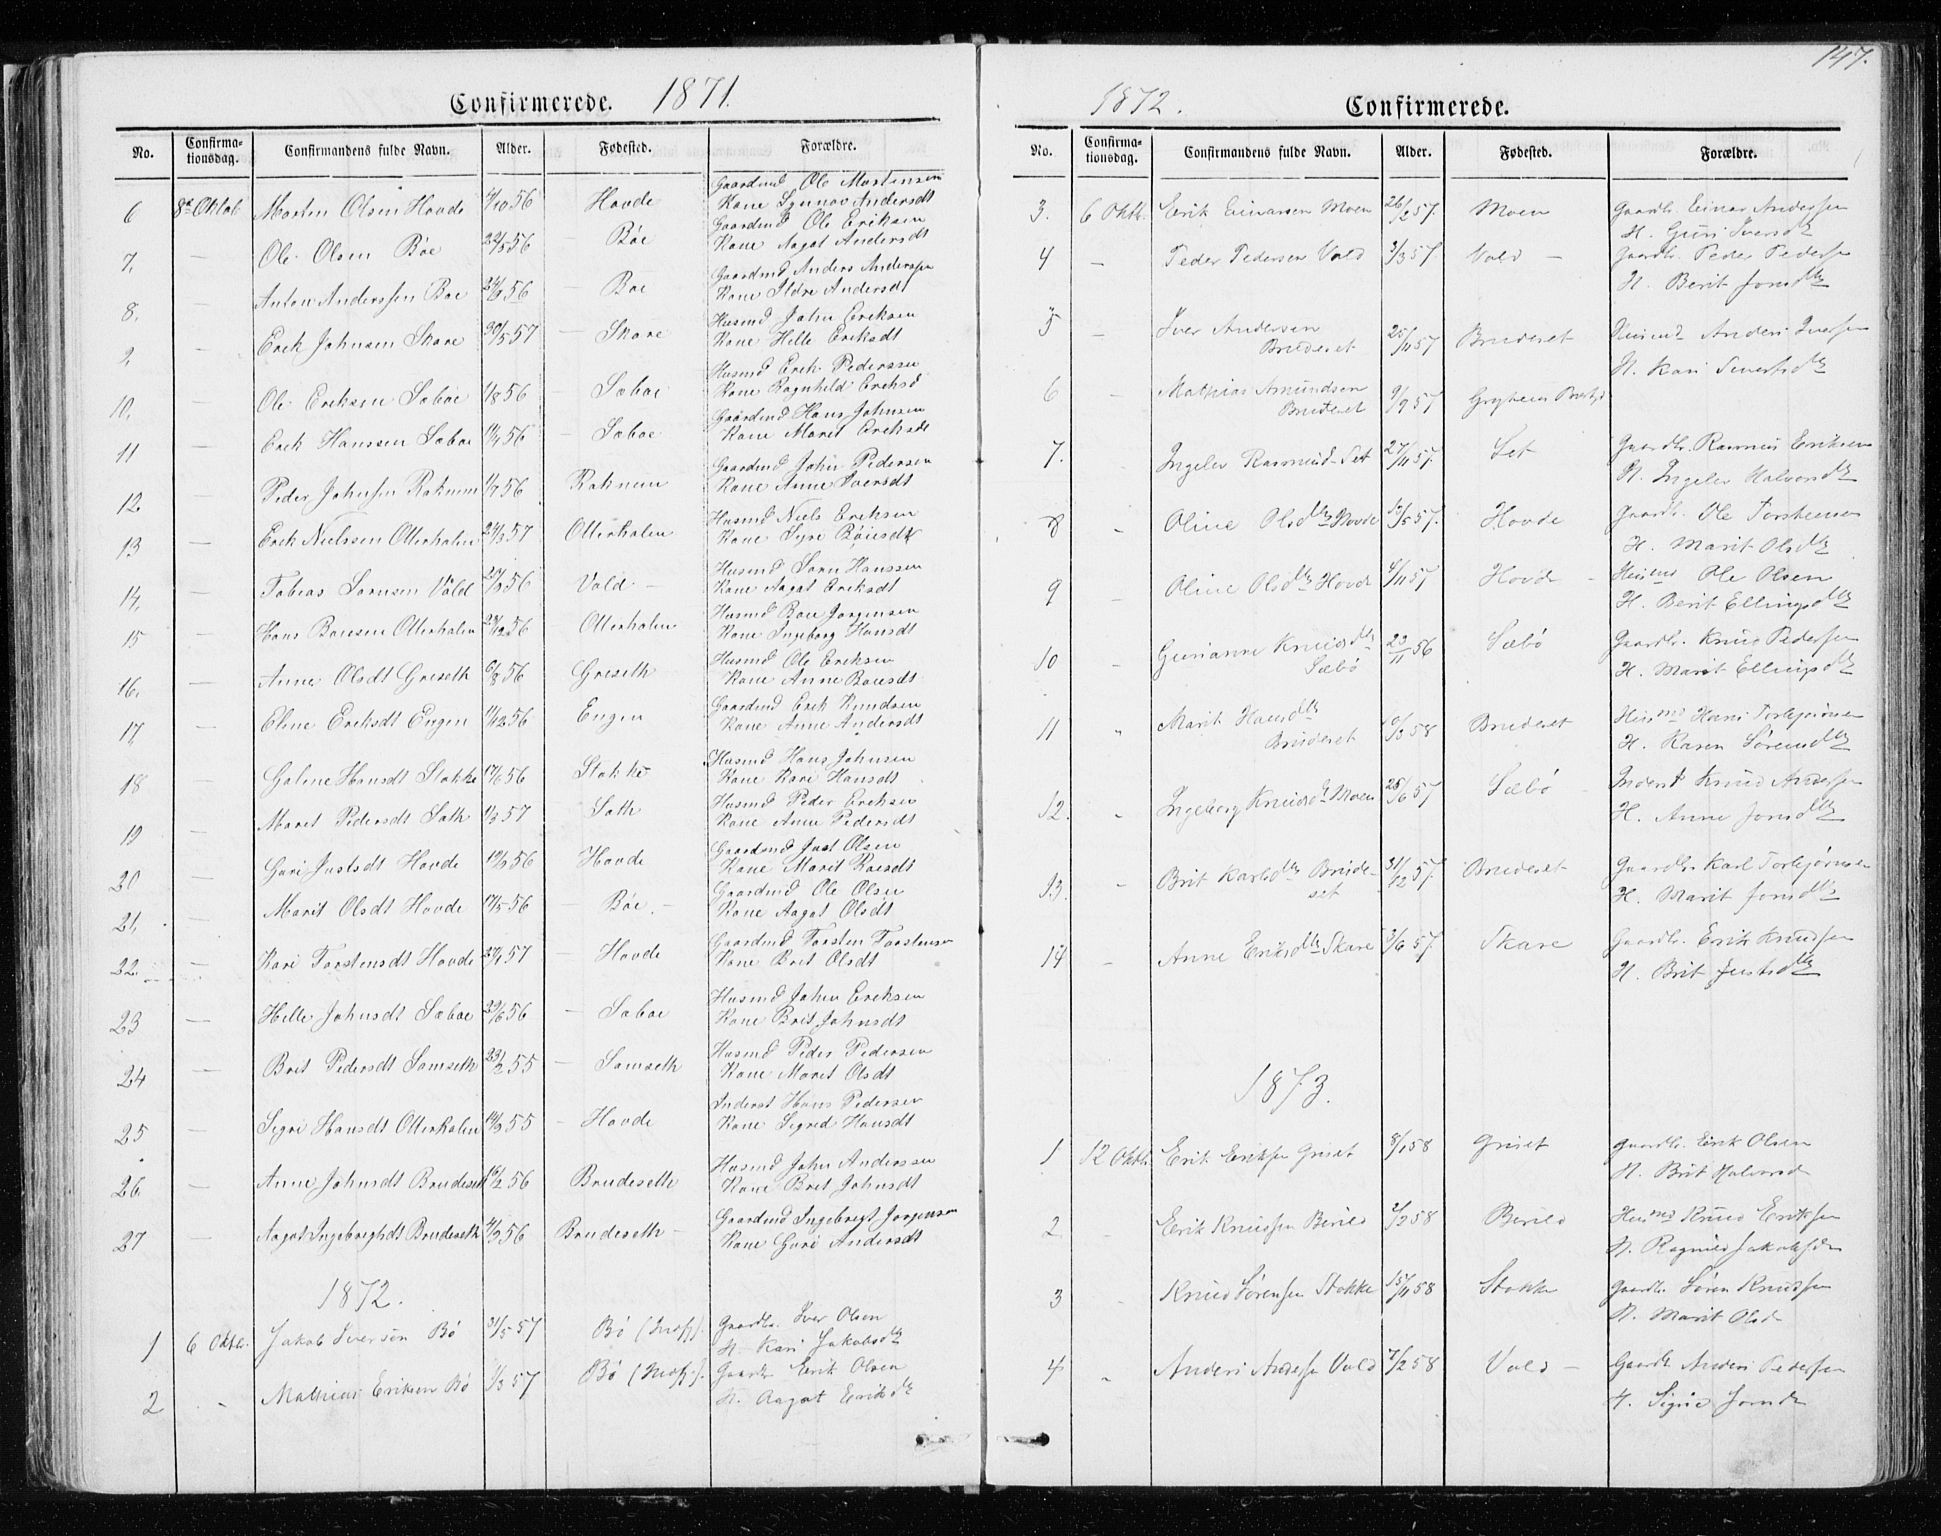 Confirmerede. 1871.
No. Confirmationsdag. Confirmandens fulde Navn. Alder. Fødested. Forældre.
6 8de Oktob Morten Olsen Hovde 4/10 56 Hovde Gaardmd Ole Mortensen
Kone Synnøv Andersdt
7, — Ole Olsen Bøe 29/5 56 — Bøe Gaardmd Ole Eriksen
Kone Aagot Andersdt
8. — Anton Anderssen Boe 56 — Boe Gaardmd Anders Anderssen
Kone Ildri Andersdt
9, — Erik Johnsen Skare 30/5 57 — Skare Husmd John Eriksen
Kone Helle Eriksdt
10, — Ole Eriksen Sæboe 1/8 56 — Sæboe Husmd Erik Pedersen
Kone Ragnhild Eriksd
11 — Erik Hanssen Sæboe 56 — Sæboe Gaardmd Hans Johnsen
Kone Marit Eriksdt
12 — Peder Johnsen Raknem 56 Raknem Gaardmd John Pedersen
Kone Anne Iversdt
13 — Erik Nielssen Otterholen 57 Otterholen Husmd Niels Eriksen
Kone Syri Bøisdt
14, — Tobias Sørnsen Vold 56 Vold — Husmd Sørn Hanssen
Kone Aagot Eriksdt
15 — Hans Bonsen Otterholen 29/12 56 Otterholen Husmd Bon Jørgensen
Kone Ingeborg Hansdt
16. — Anne Olsdt Griseth 6/8 56 Griseth Husmd Ole Eriksen
Kone Anne Bousdt
17, — Oline Eriksdt Engen 11/12 56 Engen Gaardmd Erik Knudsen
Kone Anne Andersdt
18 — Goline Hansdt Stokke 17/6 56 Stokke Husmd Hans Johnsen
Kone Kari Hansdt
19 — Marit Pedersdt Sæth 57 Sæth Husmd Peder Eriksen
Kone Anne Pedersdt
20 — Guri Justsdt Hovde 56 Hovde Gaardmd Just Olsen
Kone Marit Roesdt
21, — Marit Olsdt Hovde 17/5 56 — Bøe. — Gaardmd Ole Olsen
Kone Aagot Olsdt
22. — Kari Torstensdt Hovde 57 — Hovde Gaardmd Torsten Torstensen
Kone Brit Olsdt
23 — Helle Johnsdt Sæboe 29/6 56 — Sæboe Husmd John Eriksen
Kone Brit Johnsdt
24 — Brit Pedersdt Samseth 23/2 55 — Samseth Husmd Peder Pedersen
Kone Marit Olsdt
25 — Sigri Hansdt Otterholen 55 — Hovde Inderst Hans Pedersen
Kone Sigrid Hansdt
26 — Anne Johnsdt Brudeseth 16/2 56 Brudeseth Husmd John Anderssen
Kone Brit Johnsdt
27 — Aagot Ingebregtsdt Brudeseth 56 Brudeseth — Gaardmd Ingebregt Jørgensen
Kone Guri Andersdt
1872.
1 6 Oktbr. Jakob Iversen Bø 31/5 57 Bø Gaardbr. Iver Olsen
H. Kari Jakobsdtr
2 " Mathias Eriksen Bø 1/3 57 Bø Gaardbr Erik Olsen
H. Aagot Eriksdtr
147.
1872. Confirmerede.
No. Confirmationsdag. Confirmandens fulde Navn. Alder. Fødested. Forældre.
3. 6 Oktbr. Erik Einarsen Moen 26/2 57. Moen Gaardbr. Einar Andersen
H. Guri Iversdtr
4 — Peder Pedersen Vold 3/3 57. Vold — Gaardbr. Peder Pedersen
H. Berit Jonsdtr
5 — Iver Andersen
Bruderet 25/11 57 Bruderet Anders Iversen
H. Kari Sivertsdtr
6 — Mathias Amundsen
Bruderet 9/9 57
7. Ingelev Rasmusd. Set 27/11 57. Set Gaardbr. Rasmus Eriksen
H. Ingelev Halvorsdtr
8 " Oline Olsdtr Hovde 57. Hovde Gaardbr. Ole Torsteinsen
H. Marit Olsdtr
9 — Oline Olsdtr Hovde 4/11 57 Hovde — Husmd Ole Olsen
H. Berit Ellingsdtr
10 " Gurianne Knudsdtr
Sæbø 23/11 56 Sæbø Gaardbr. Knud Pedersen
H. Marit Ellingsdtr
11 " Marit Hansdtr
Bruderet 10/3 58 Bruderet Husmd Hans Torbjørnsen
H. Karen Sørensdtr
12. " Ingeborg Knudsdtr Moen 28/6 57 Sæbø — Inderst Knud Andersen
H. Anne Jonsdtr
13. " Brit Karlsdtr Brude-
set 31/12 57. Bruderet Gaardbr. Karl Torbjørnsen
H. Marit Jonsdtr
14 — Anne Eriksdtr Skare 3/6 57. Skare Gaardbr. Erik Knudsen
H. Brit Justsdtr
1873.
1 12 Oktbr. Erik Eriksen Griset 8/1 58 Griset Gaardbr. Erik Olsen
H. Brit Halvorsd
2 " Erik Knudsen Berild 2/2 58 Berild Husmd Knud Eriksen
H. Ragnild Jakobsdtr
3 " Knud Sørensen Stokke 15/11 58 Stokke Gaardbr. Søren Knudsen
H. Marit Olsd
4 " Anders Andersen Vold 7/2 58 Vold — Gaardbr Anders Pedersen
H. Signe Jonsdtr